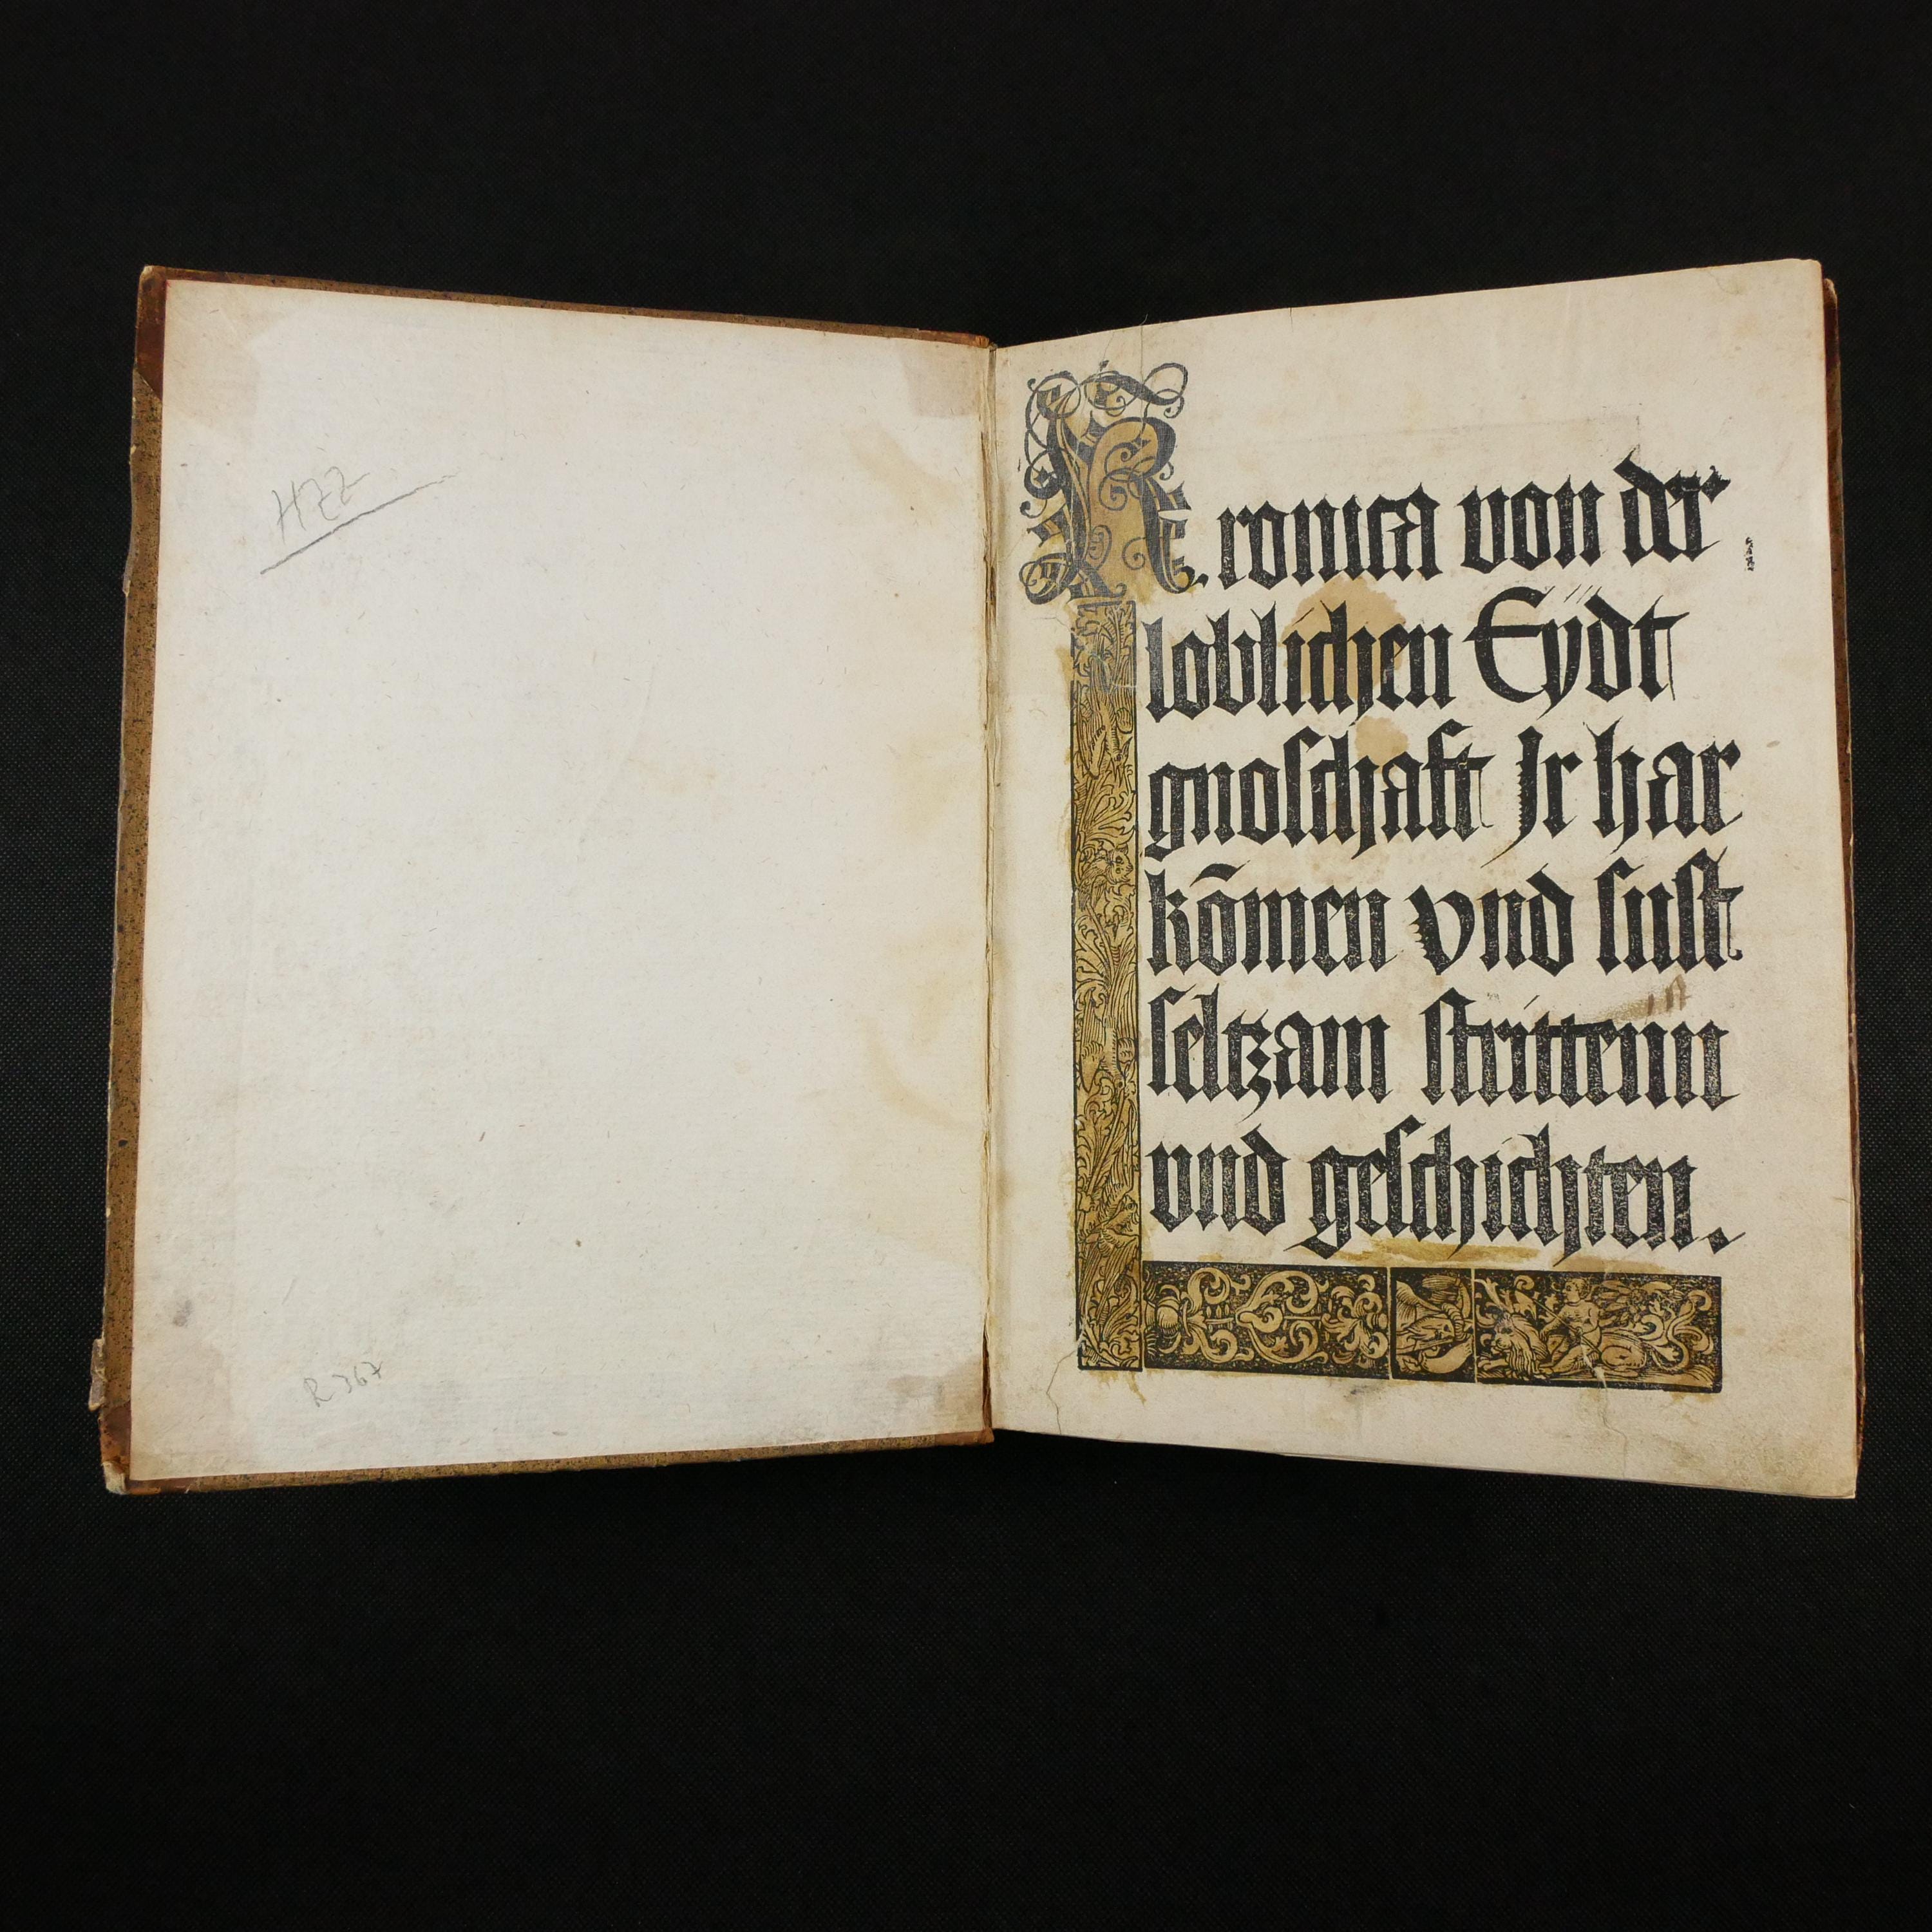 HZZ
R 367
Kronica von der
loblichen Eydt
gnoschaft Jr har
kōmen vnd sust
seltzam strittenn
vnd geschichten.